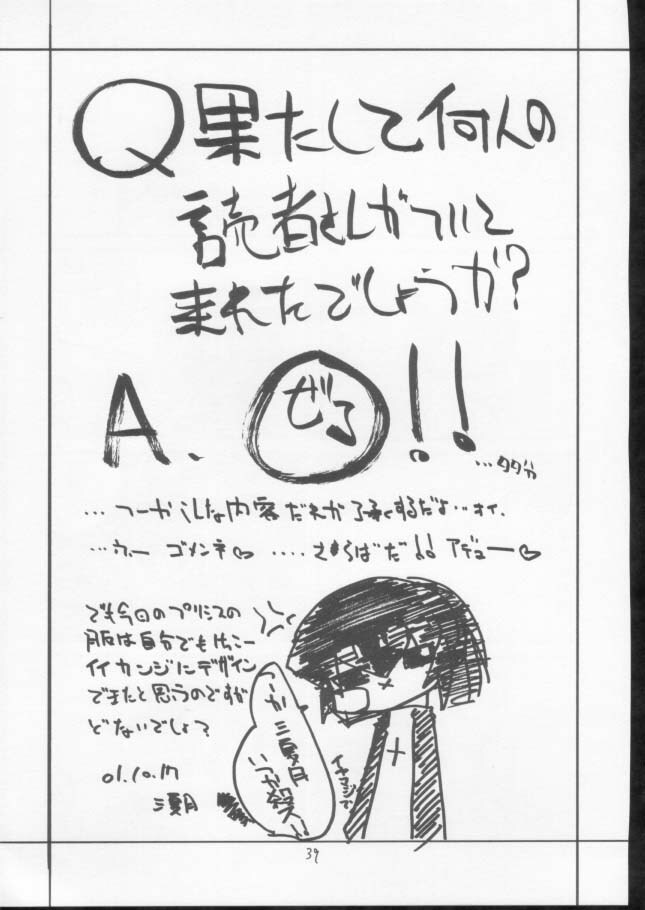 Q 果たして何人の
読者さんがついて
来れたでしょうか?
A. ぜろ!!
…タブン
…つーかこんな内容だれが了承するだよ…オイ.
…うー ゴメンネ♡ ....さらばだ!! アデュー♡
でも今回のプリシスの
服は自分でもけっこー
イイカンジにデザイン
できたと思うのですが
どないでしょ?
01.10.17
つーか
いつか殺ス!!
イヤマジで
39